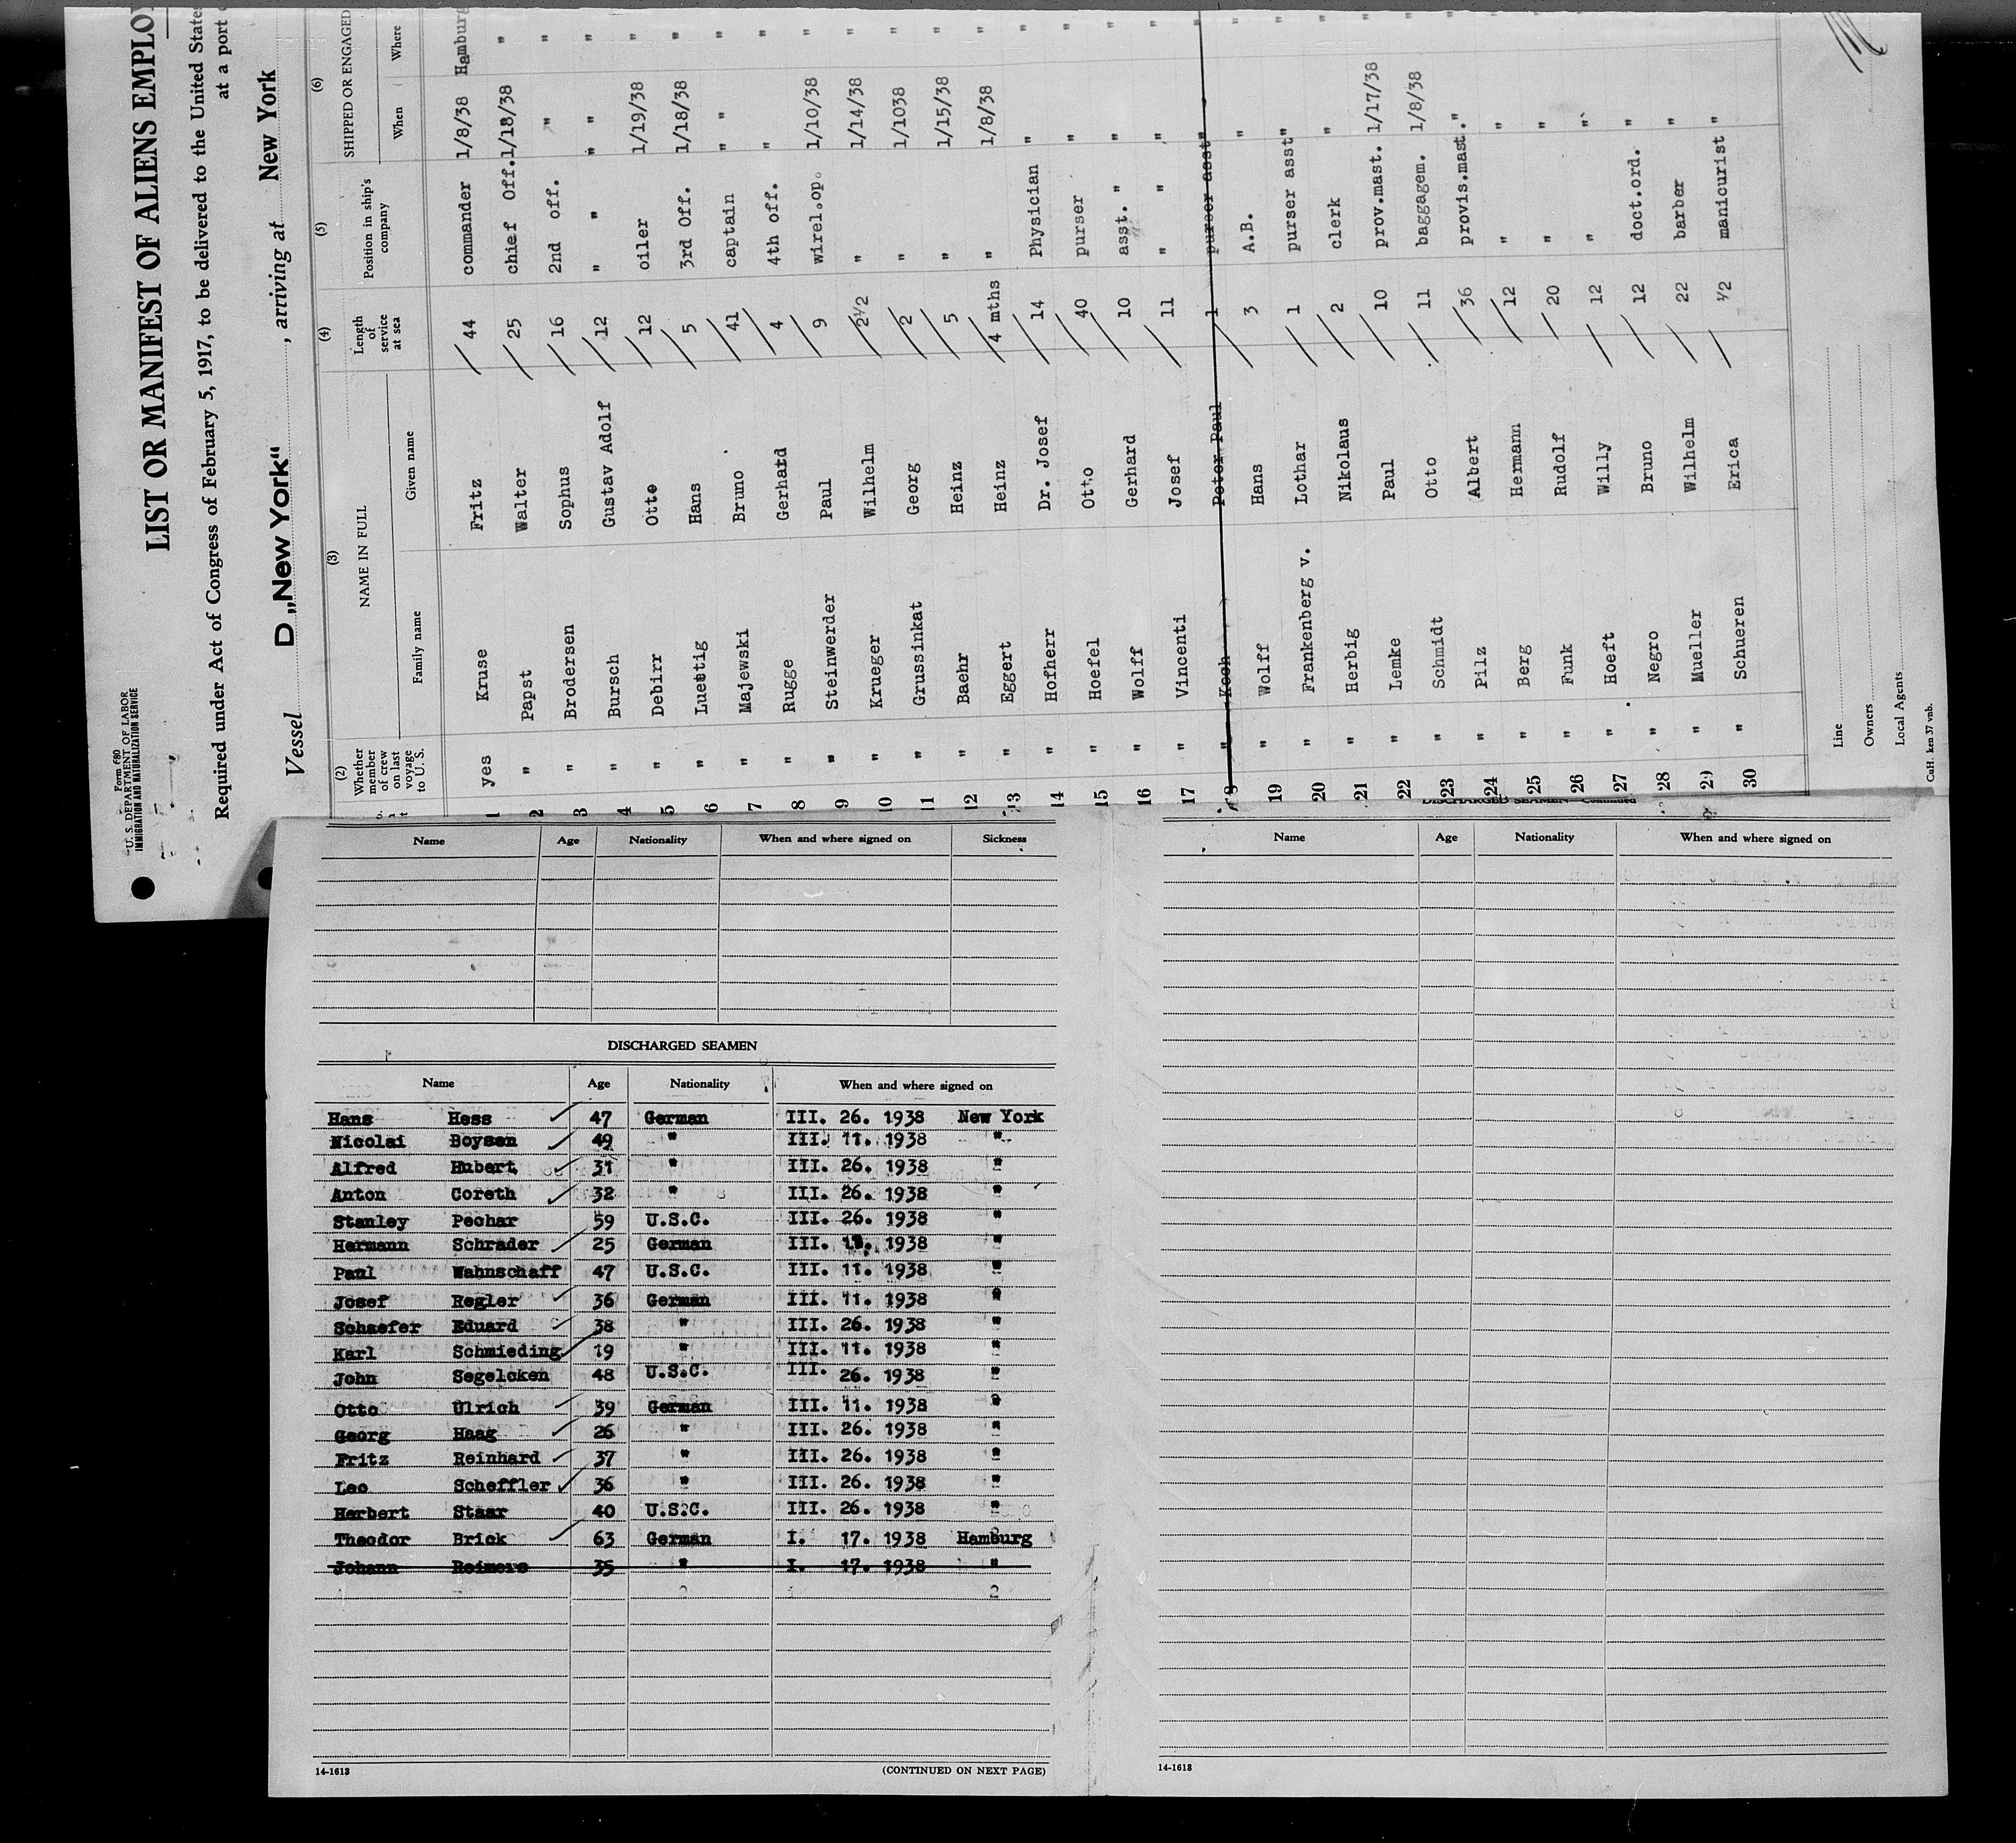 Form 680
U. S. DEPARTMENT OF LABOR
IMMIGRATION AND NATURALIZATION SERVICE
LIST OR MANIFEST OF ALIENS EMPLO
Required under Act of Congress of February 5, 1917, to be delivered to the United States
at a port
Vessel D „New York“ , arriving at New York
(2) (3) (4) (5) (6)
Whether member of crew on last voyage to U. S. NAME IN FULL Length of service at sea Position in ship's company SHIPPED OR ENGAGED
Family name Given name When Where
1 yes Kruse Fritz 44 commander 1/8/38 Hamburg
2 " Papst Walter 25 chief Off. 1/18/38 "
3 " Brodersen Sophus 16 2nd off. " "
4 " Bursch Gustav Adolf 12 " " "
5 " Debirr Otto 12 oiler 1/19/38 "
6 " Luettig Hans 5 3rd Off. 1/18/38 "
7 " Majewski Bruno 41 captain " "
8 " Rugge Gerhard 4 4th off. " "
9 " Steinwerder Paul 9 wirel.op. 1/10/38 "
10 " Krueger Wilhelm 2½ " 1/14/38 "
11 " Grussinkat Georg 2 " 1/1038 "
12 " Baehr Heinz 5 " 1/15/38 "
13 " Eggert Heinz 4 mths " 1/8/38 "
14 " Hofherr Dr. Josef 14 Physician " "
15 " Hoefel Otto 40 purser " "
16 " Wolff Gerhard 10 asst. " " "
17 " Vincenti Josef 11 " " " "
18 " Koch Peter Paul 1 purser asst " "
19 " Wolff Hans 3 A.B. " "
20 " Frankenberg v. Lothar 1 purser asst " "
21 " Herbig Nikolaus 2 clerk " "
22 " Lemke Paul 10 prov.mast. 1/17/38 "
23 " Schmidt Otto 11 baggagem. 1/8/38 "
24 " Pilz Albert 36 provis.mast. " "
25 " Berg Hermann 12 " " "
26 " Funk Rudolf 20 " " "
27 " Hoeft Willy 12 " " "
28 " Negro Bruno 12 doct.ord. " "
29 " Mueller Wilhelm 22 barber " "
30 " Schueren Erica ½ manicurist " "
Line
Owners
Local Agents
CuH. ken 37 vnb.
Name Age Nationality When and where signed on Sickness
DISCHARGED SEAMEN
Name Age Nationality When and where signed on
Hans Hess 47 German III. 26. 1938 New York
Nicolai Boysen 49 " III. 11. 1938 "
Alfred Hubert 31 " III. 26. 1938 "
Anton Coreth 32 " III. 26. 1938 "
Stanley Pechar 59 U.S.C. III. 26. 1938 "
Hermann Schrader 25 German III. 1938 "
Paul Wahnschaff 47 U.S.C. III. 11. 1938 "
Josef Regler 36 German III. 11. 1938 "
Schaefer Eduard 38 " III. 26. 1938 "
Karl Schmieding 19 " III. 11. 1938 "
John Segelcken 48 U.S.C. III. 26. 1938 "
Otto Ulrich 39 German III. 11. 1938 "
Georg Haag 26 " III. 26. 1938 "
Fritz Reinhard 37 " III. 26. 1938 "
Leo Scheffler 36 " III. 26. 1938 "
Herbert Staar 40 U.S.C. III. 26. 1938 "
Theodor Brick 63 German I. 17. 1938 Hamburg
Johann Reimers 35 " I. 17. 1938 "
14-1613 (CONTINUED ON NEXT PAGE)
DISCHARGED SEAMEN—Continued
Name Age Nationality When and where signed on
14-1613